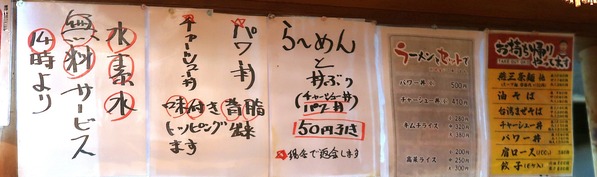 水素水
無料サービス
14時より
パワ丼
チャーシュー丼
味付き背脂
トッピング出来
ます
らーめん
と
丼ぶり
(チャーシュー丼
パワ丼)
50円引き
現金で返金します
ラーメンとセットで
パワー丼 (小) ¥500
チャーシュー丼 (小) ¥410
¥260
キムチライス ¥320
¥380
¥200
高菜ライス ¥250
¥300
お持ち帰り
やってます
TAKE OUT OK!!
油そば
台湾まぜそば
チャーシュー丼
パワー丼
肩ロース
餃子